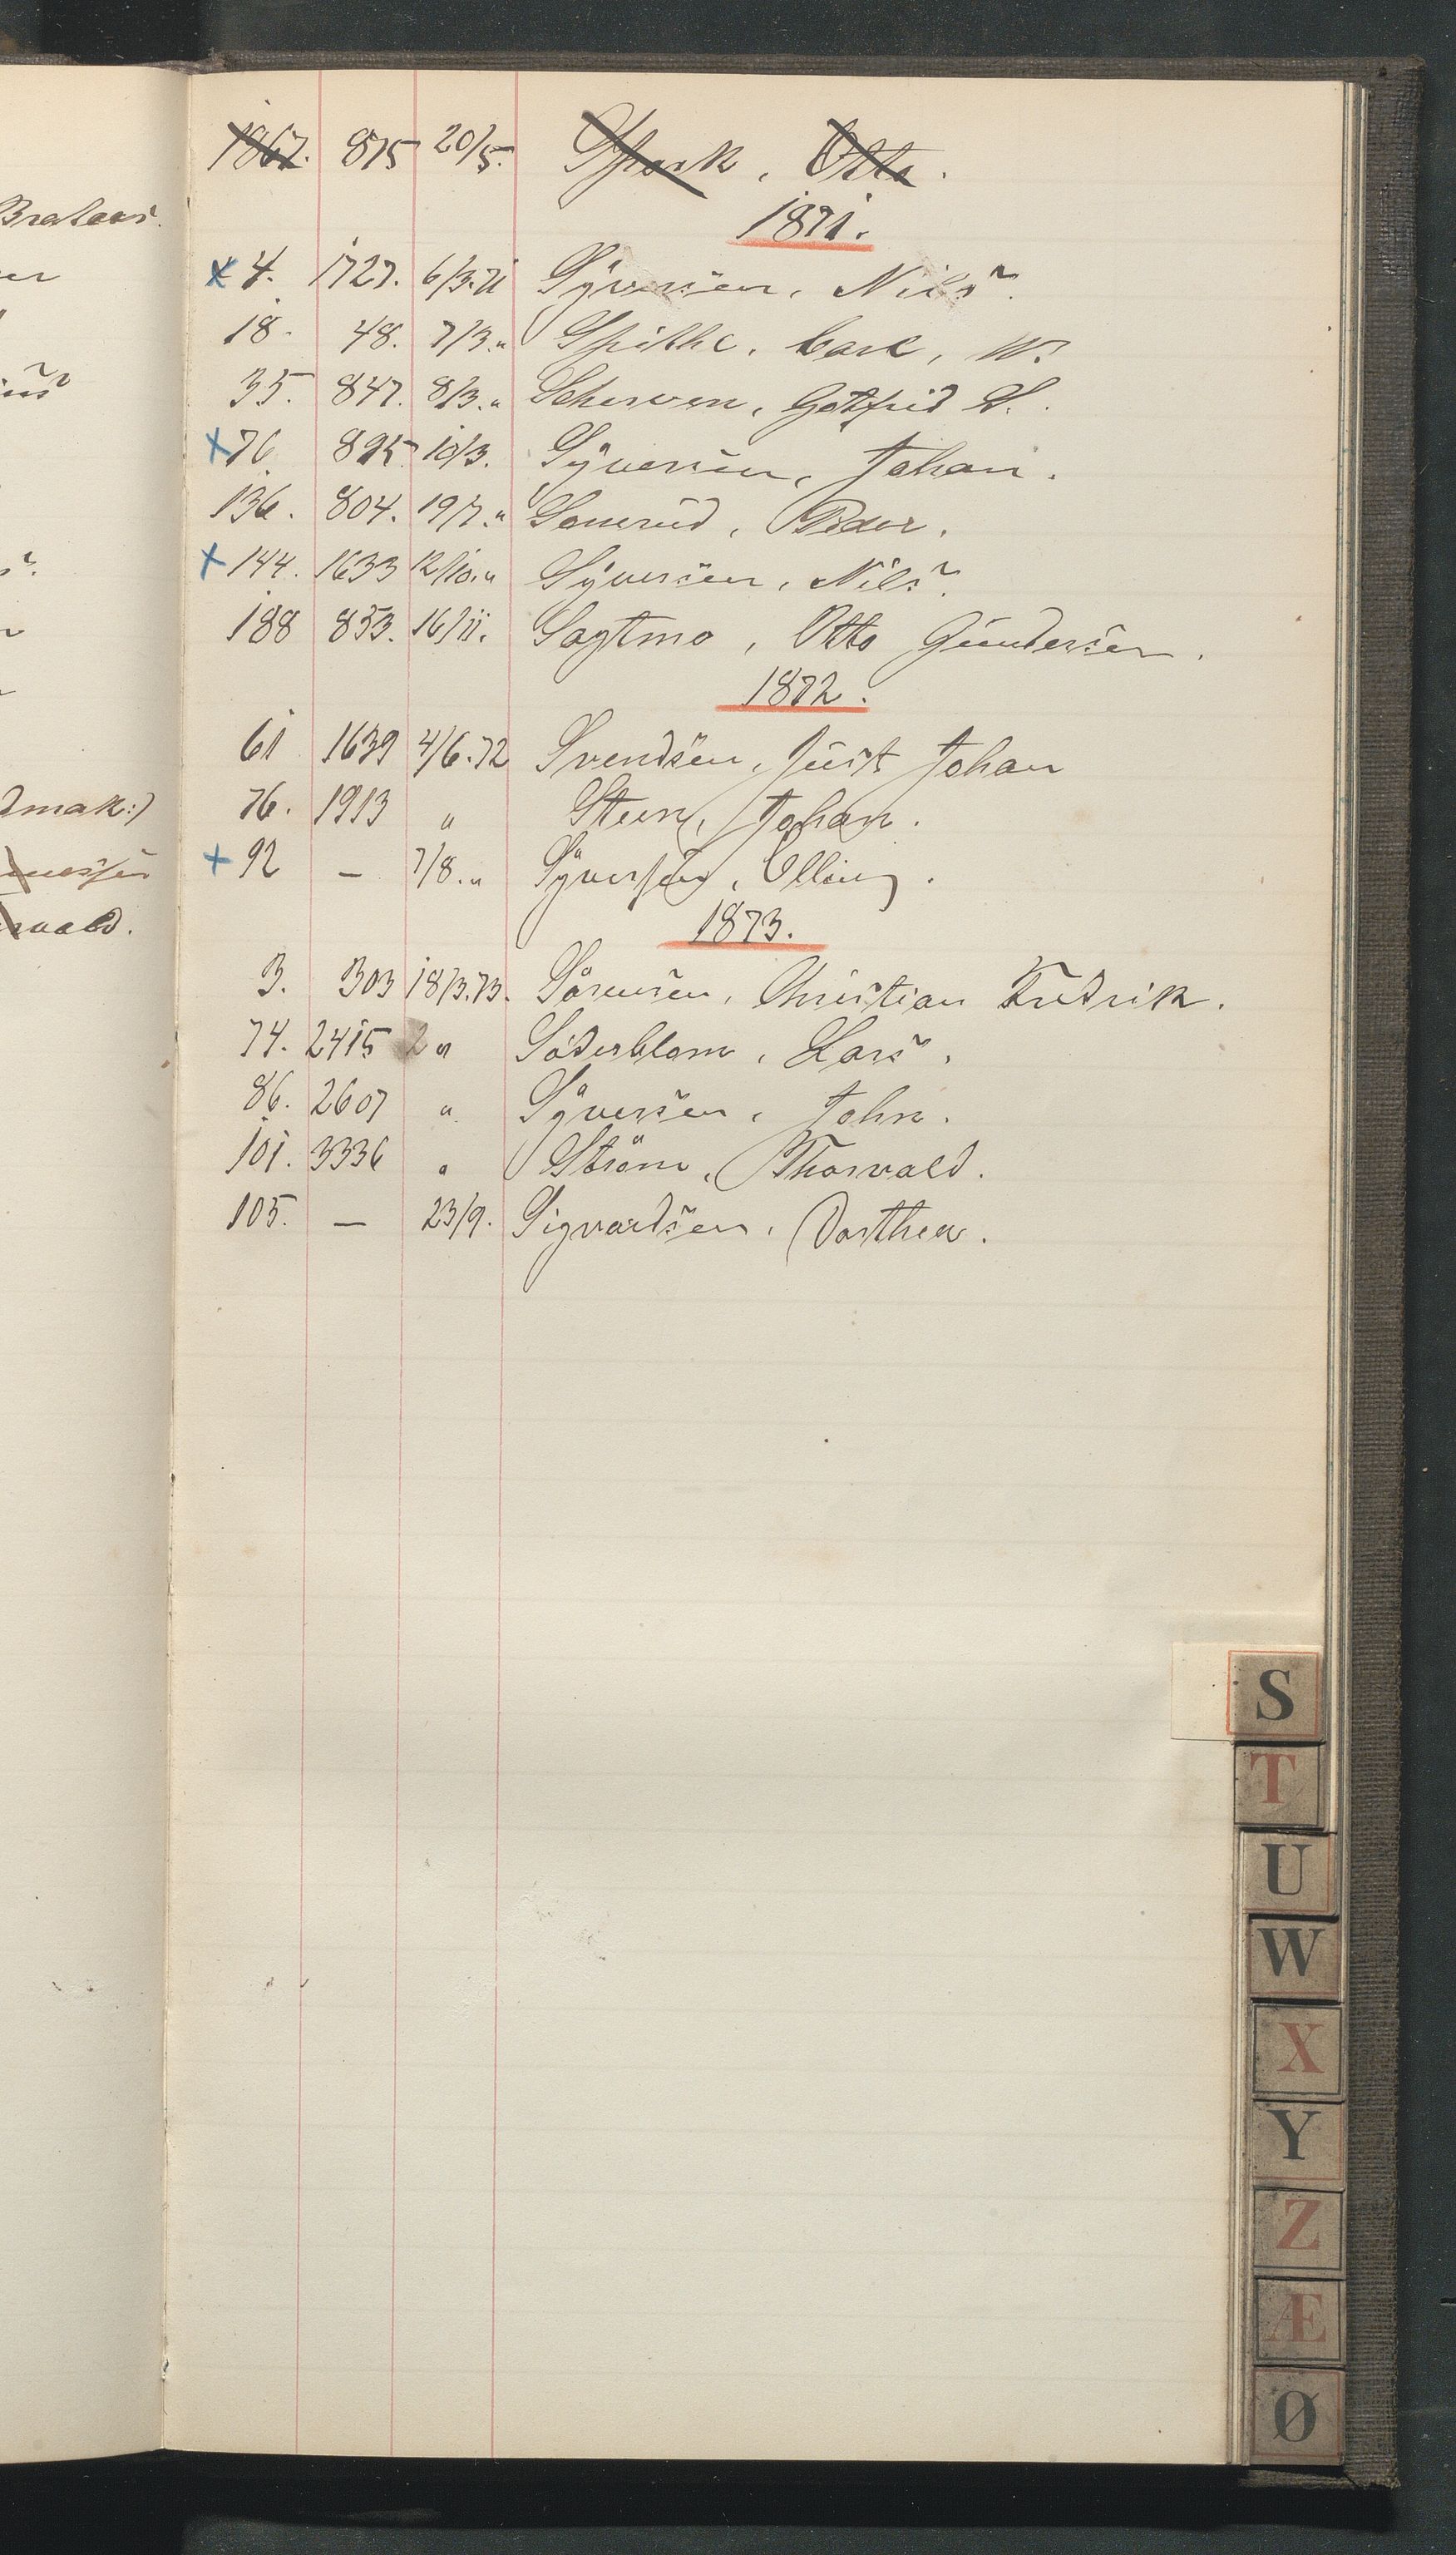 Bratens.
1867. 875 20/5. Spork, Otto.
1871.
x 4. 1727. 6/3.71 Syversen, Nils.
18. 48. 7/3.„ Spithe, Carl, W.
35. 847. 8/3.„ Scherven, Gotfrid S.
x 76. 895 10/3. Syversen, Johan.
136. 804. 19/7.„ Sonerud, Peder.
x 144. 1633 12/10.„ Syversen, Nils.
188 853. 16/11. Sagtmo, Otto Gundersen.
1872.
61 1639 4/6.72 Svendsen, Just Johan
dmak:)
76. 1913 „ Steen, Johan.
+ 92 — 7/8.„ Syversen, Elling.
1873.
3. 303 18/3.73. Sørensen, Christian Fredrik.
74. 2415 2 „ Söderblom, Lars.
86. 2607 „ Syversen, John.
101. 3336 „ Ström, Thorvald.
105. — 23/9. Sigvardsen, Dorthea.
S
T
U
W
X
Y
Z
Æ
Ø